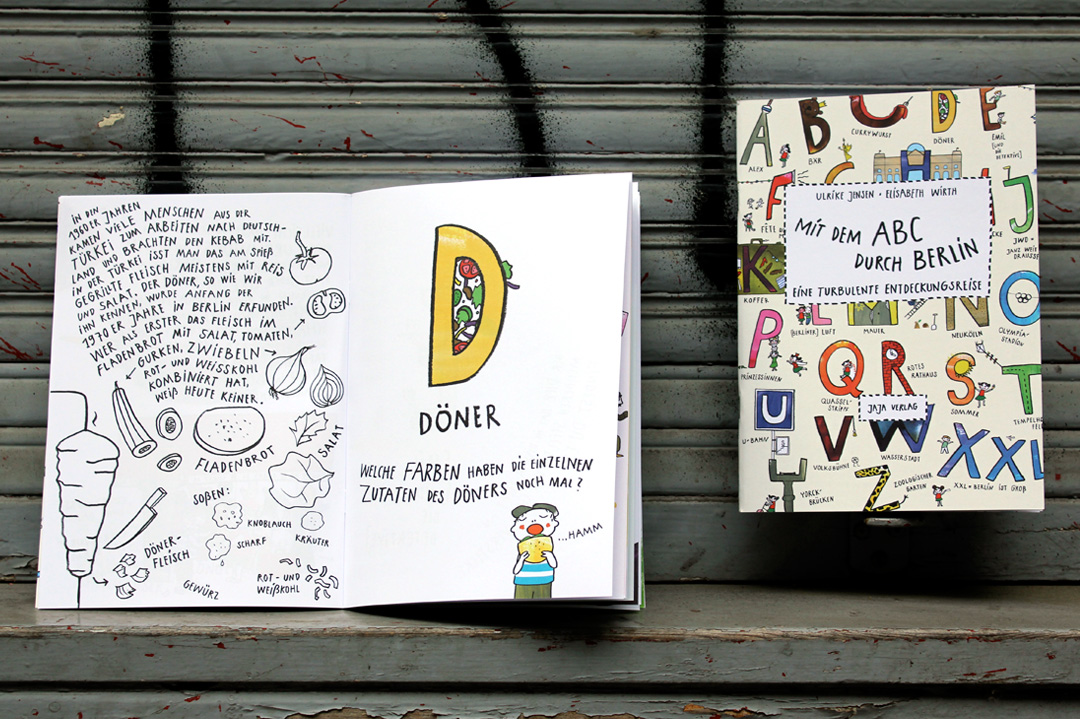 IN DEN
1960ER JAHREN
KAMEN VIELE MENSCHEN AUS DER
TÜRKEI ZUM ARBEITEN NACH DEUTSCH-
LAND UND BRACHTEN DEN KEBAB MIT.
IN DER TÜRKEI ISST MAN DAS AM SPIEß
GEGRILLTE FLEISCH MEISTENS MIT REIS
UND SALAT. DER DÖNER, SO WIE WIR
IHN KENNEN, WURDE ANFANG DER
1970ER JAHRE IN BERLIN ERFUNDEN.
WER ALS ERSTER DAS FLEISCH IM
FLADENBROT MIT SALAT, TOMATEN,
GURKEN, ZWIEBELN
ROT- UND WEISSKOHL
KOMBINIERT HAT,
WEIß HEUTE KEINER.
FLADENBROT
SALAT
SOßEN:
KNOBLAUCH
SCHARF
KRÄUTER
DÖNER-
FLEISCH
GEWÜRZ
ROT- UND
WEIßKOHL
D
DÖNER
WELCHE FARBEN HABEN DIE EINZELNEN
ZUTATEN DES DÖNERS NOCH MAL?
...HAMM
A B C D E
ALEX
BÄR
CURRYWURST
DÖNER
EMIL
[UND
DIE
DETEKTIVE]
F
H
J
FÊTE
ULRIKE JENSEN • ELISABETH WIRTH
MIT DEM ABC
DURCH BERLIN
EINE TURBULENTE ENTDECKUNGSREISE
JWD =
JANZ WEIT
DRAUSSEN
K
KOFFER
P
L
M
N
O
PRINZESSINNEN
[BERLINER] LUFT
MAUER
NEUKÖLLN
OLYMPIA-
STADION
Q
R
S
T
QUASSEL-
STRIPPEN
ROTES
RATHAUS
SOMMER
JAJA VERLAG
U
V
W
XXL
U-BAHN
VOLKSBÜHNE
WASSERSTADT
XXL = BERLIN IST GROß
Y
Z
YORCK-
BRÜCKEN
ZOOLOGISCHER
GARTEN